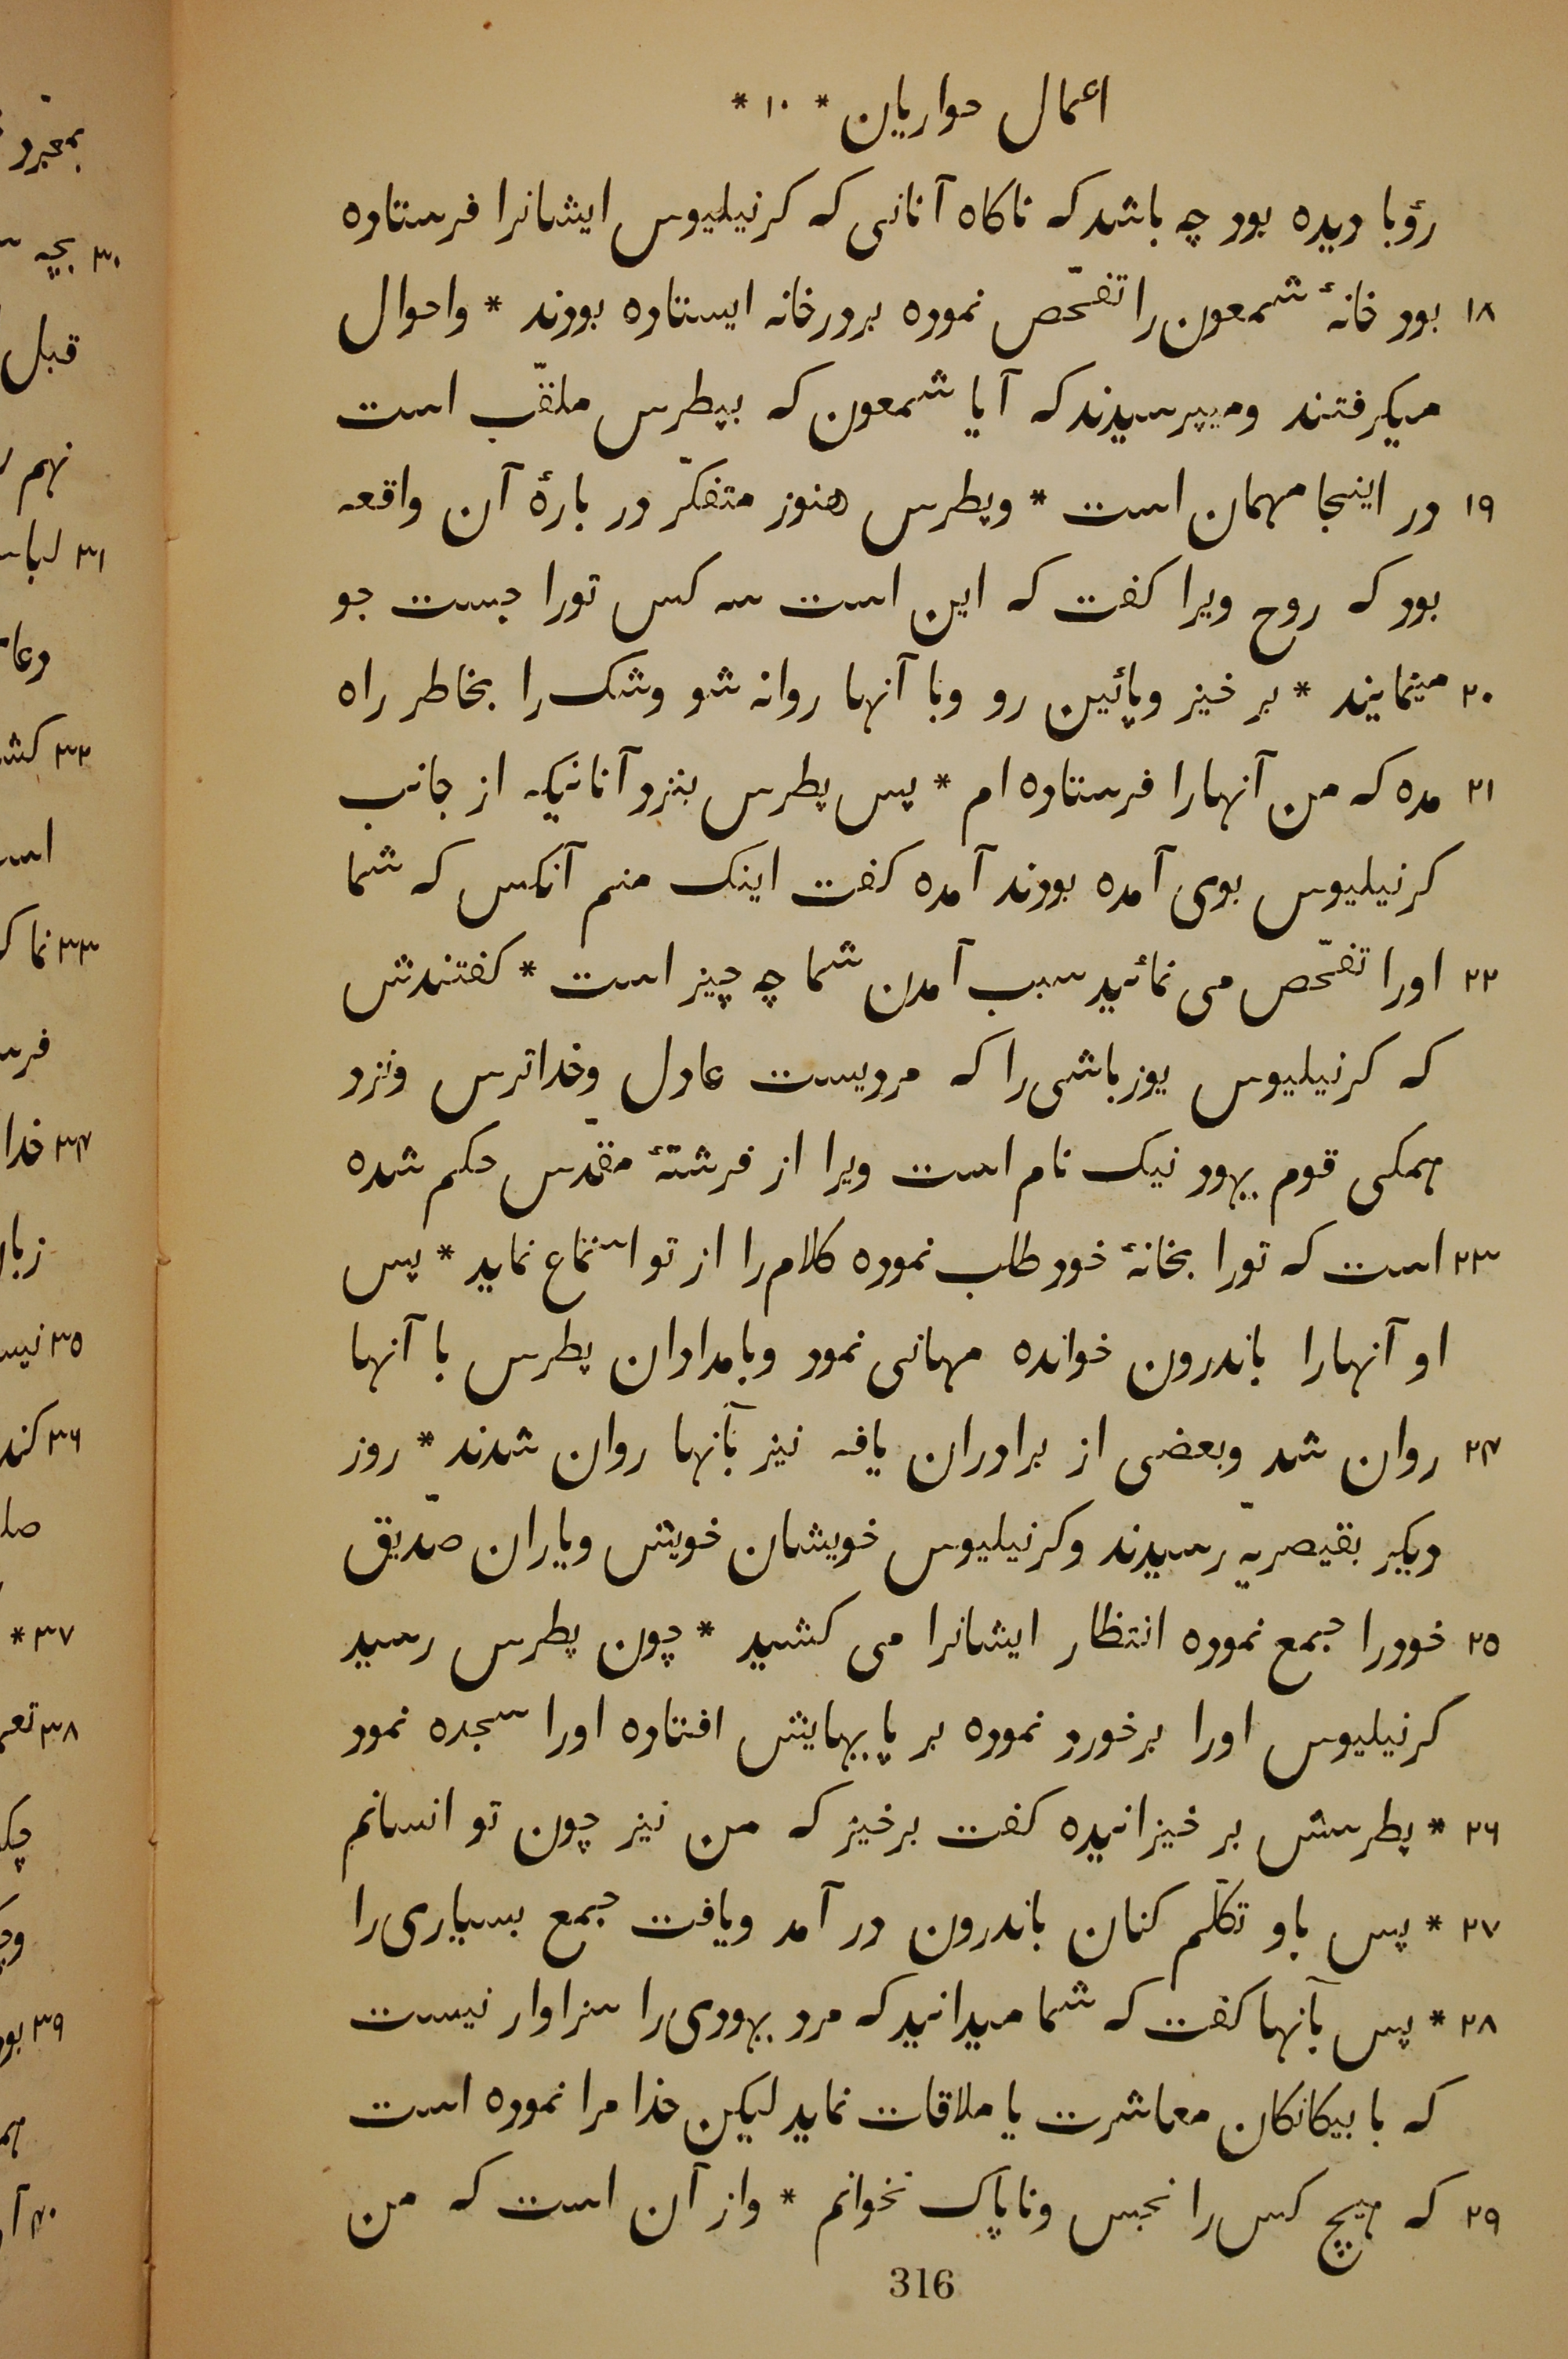 اعمال حواریان * ١٠ *
رؤیا دیده بود چه باشد که ناکاه آنانی که کرنیلیوس ایشانرا فرستاده
١٨ بود خانهٔ شمعون را تفحّص نموده بر در خانه ایستاده بودند * واحوال
میکرفتند ومیپرسیدند که آیا شمعون که بپطرس ملقّب است
١٩ در اینجا مهمان است * وپطرس هنوز متفکّر در بارهٔ آن واقعه
بود که روح ویرا کفت که این است سه کس تورا جست جو
٢٠ مینمایند * بر خیز وپائین رو وبا آنها روانه شو وشک را بخاطر راه
٢١ مده که من آنهارا فرستاده ام * پس پطرس بنزد آنانیکه از جانب
کرنیلیوس بوی آمده بودند آمده کفت اینک منم آنکس که شما
٢٢ اورا تفحّص می نمائید سبب آمدن شما چه چیز است * کفتندش
که کرنیلیوس یوزباشی را که مردیست عادل وخداترس ونزد
همکی قوم یهود نیک نام است ویرا از فرشتهٔ مقدّس حکم شده
٢٣ است که تورا بخانهٔ خود طلب نموده کلام را از تو استماع نماید * پس
او آنهارا باندرون خوانده مهمانی نمود وبامدادان پطرس با آنها
٢٤ روان شد وبعضی از برادران یافه نیز بآنها روان شدند * روز
دیکر بقیصریّه رسیدند وکرنیلیوس خویشان خویش ویاران صدّیق
٢٥ خودرا جمع نموده انتظار ایشانرا می کشید * چون پطرس رسید
کرنیلیوس اورا برخورد نموده بر پایهایش افتاده اورا سجده نمود
٢٦ * پطرسش بر خیزانیده کفت برخیز که من نیز چون تو انسانم
٢٧ * پس باو تکلّم کنان باندرون در آمد ویافت جمع بسیاری را
٢٨ * پس بآنها کفت که شما میدانید که مرد یهودی را سزاوار نیست
که با بیکانکان معاشرت یا ملاقات نماید لیکن خدا مرا نموده است
٢٩ که هیچ کس را نجس وناپاک نخوانم * واز آن است که من
316